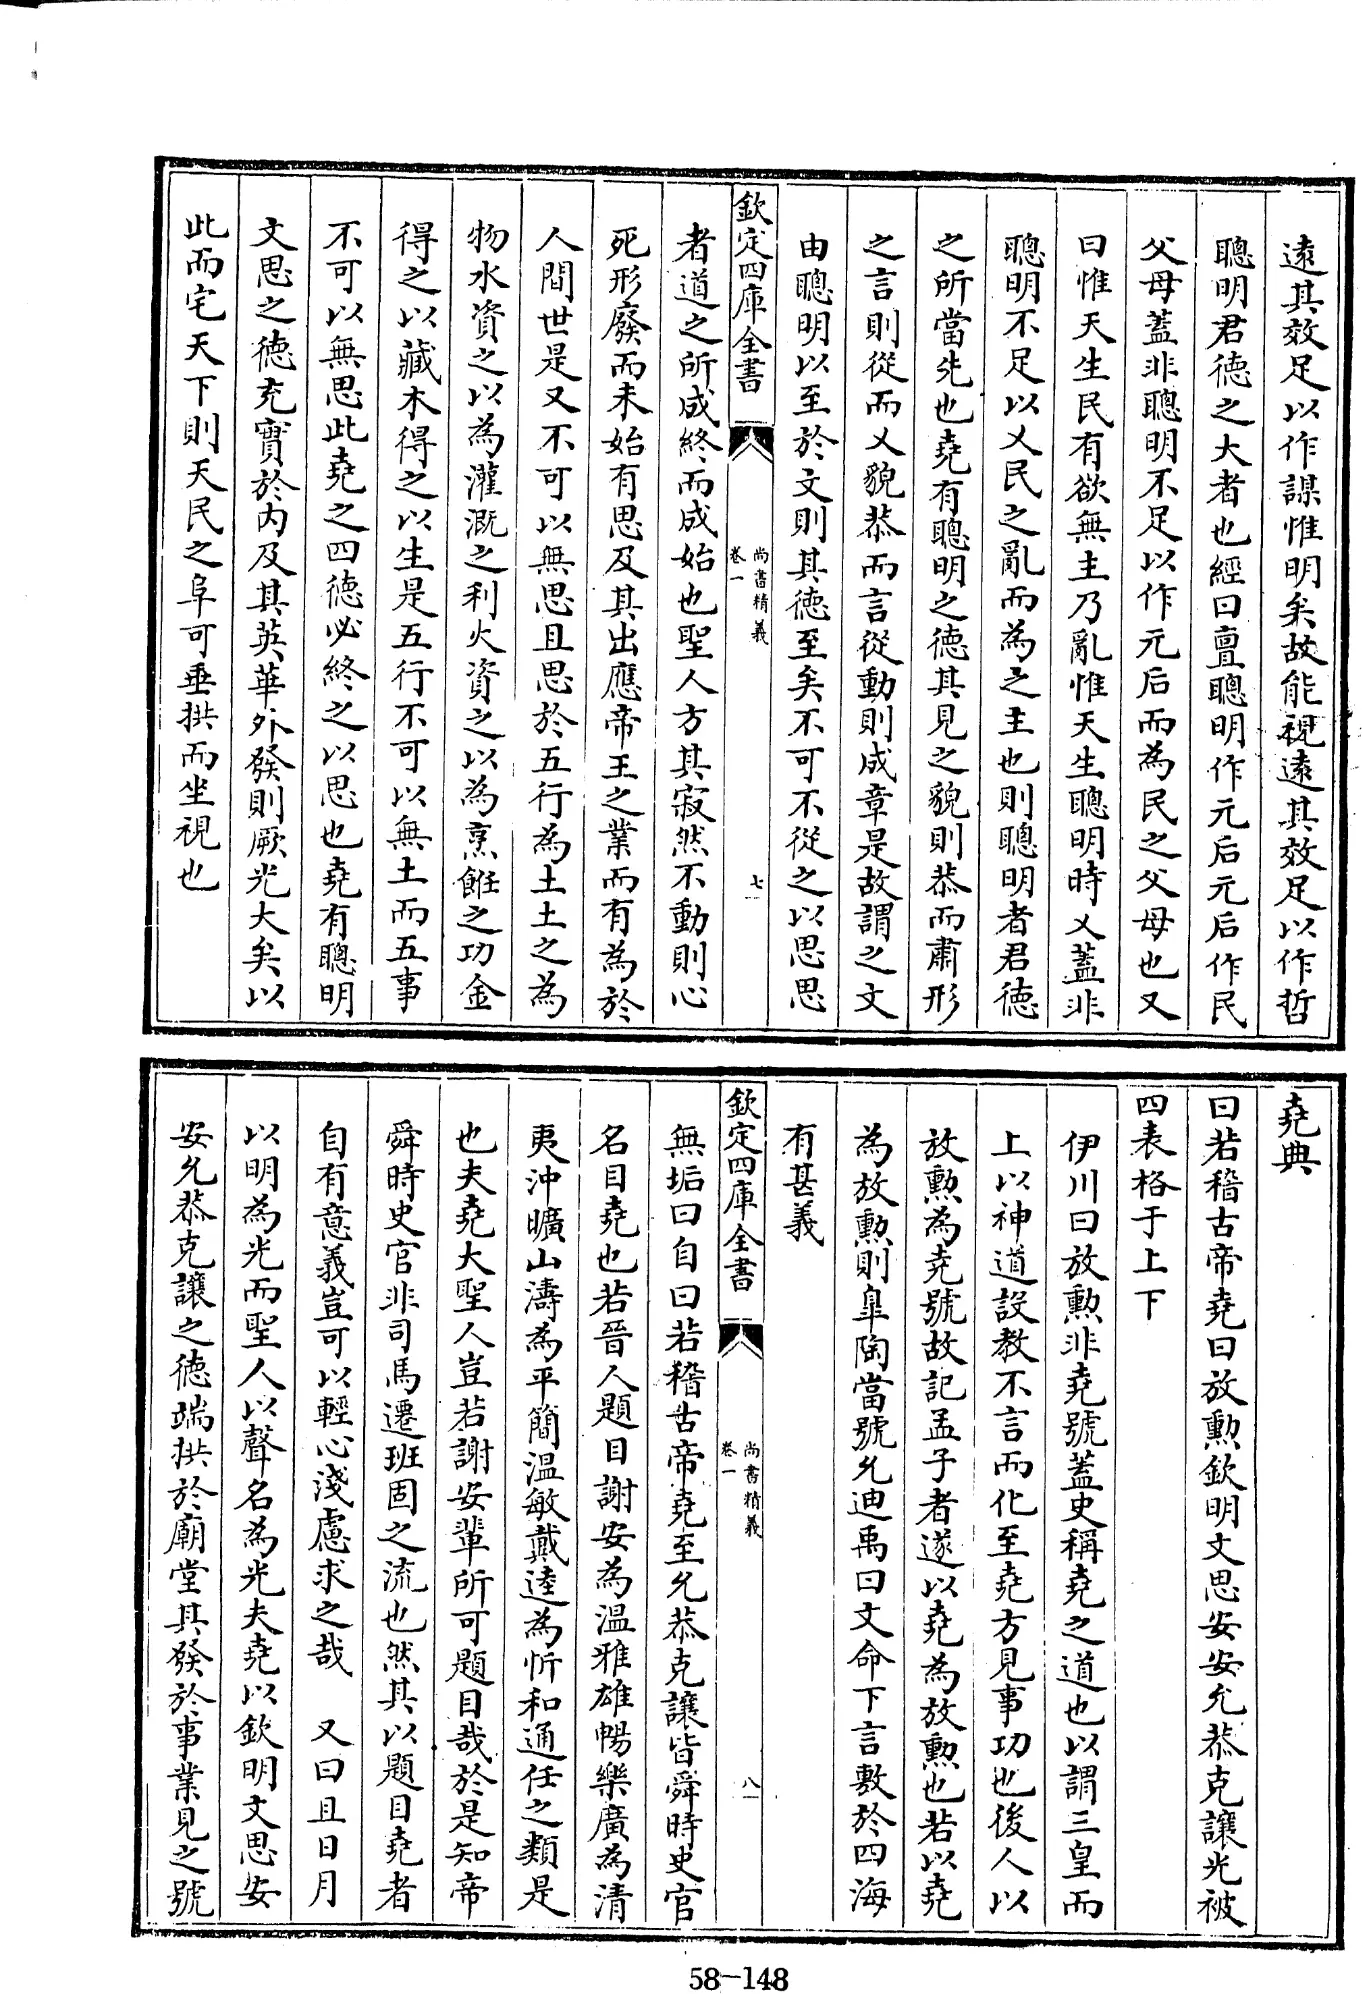 遠其效足以作謀惟明矣故能視遠其效足以作哲
聰明君徳之大者也經曰亶聰明作元后元后作民
父母蓋非聰明不足以作元后而為民之父母也又
曰惟天生民有欲無主乃亂惟天生聰明時乂蓋非
聰明不足以乂民之亂而為之主也則聰明者君徳
之所當先也堯有聰明之徳其見之貌則恭而肅形
之言則從而乂貌恭而言從動則成章是故謂之文
由聰明以至於文則其徳至矣不可不從之以思思
欽定四庫全書
尚書精義
卷一
七
者道之所成終而成始也聖人方其寂然不動則心
死形廢而未始有思及其出應帝王之業而有為於
人間世是又不可以無思且思於五行為土土之為
物水資之以為灌溉之利火資之以為烹飪之功金
得之以藏木得之以生是五行不可以無土而五事
不可以無思此堯之四徳必終之以思也堯有聰明
文思之徳充實於内及其英華外發則厥光大矣以
此而宅天下則天民之阜可垂拱而坐視也
堯典
曰若稽古帝堯曰放勲欽明文思安安允恭克讓光被
四表格于上下
伊川曰放勲非堯號蓋史稱堯之道也以謂三皇而
上以神道設教不言而化至堯方見事功也後人以
放勲為堯號故記孟子者遂以堯為放勲也若以堯
為放勲則臯陶當號允迪禹曰文命下言敷於四海
有甚義
欽定四庫全書
尚書精義
卷一
八
無垢曰自曰若稽古帝堯至允恭克讓皆舜時史官
名目堯也若晉人題目謝安為温雅雄暢樂廣為清
夷沖曠山濤為平簡温敏戴逵為忻和通任之類是
也夫堯大聖人豈若謝安輩所可題目哉於是知帝
舜時史官非司馬遷班固之流也然其以題目堯者
自有意義豈可以輕心淺慮求之哉　又曰且日月
以明為光而聖人以聲名為光夫堯以欽明文思安
安允恭克讓之徳端拱於廟堂其發於事業見之號
58-148